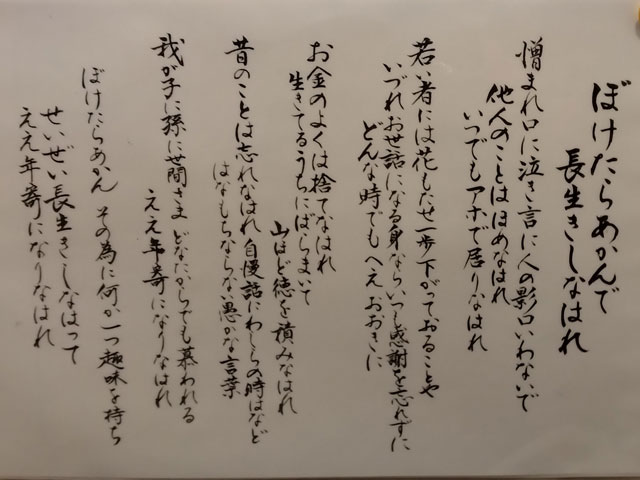 ぼけたらあかんで
長生きしなはれ
憎まれ口に泣き言に人の影口いわないで
他人のことはほめなはれ
いつでもアホで居りなはれ
若い者には花もたせ一歩下がっておることや
いづれお世話になる身ならいつも感謝を忘れずに
どんな時でもへえおおきに
お金のよくは捨てなはれ
生きてるうちにばらまいて
山ほど徳を積みなはれ
昔のことは忘れなはれ自慢話にわしらの時はなど
はなもちならない愚かな言葉
我が子に孫に世間さまどなたからでも慕われる
ええ年寄になりなはれ
ぼけたらあかん その為に何か一つ趣味を持ち
せいぜい長生きしなはって
ええ年寄になりなはれ